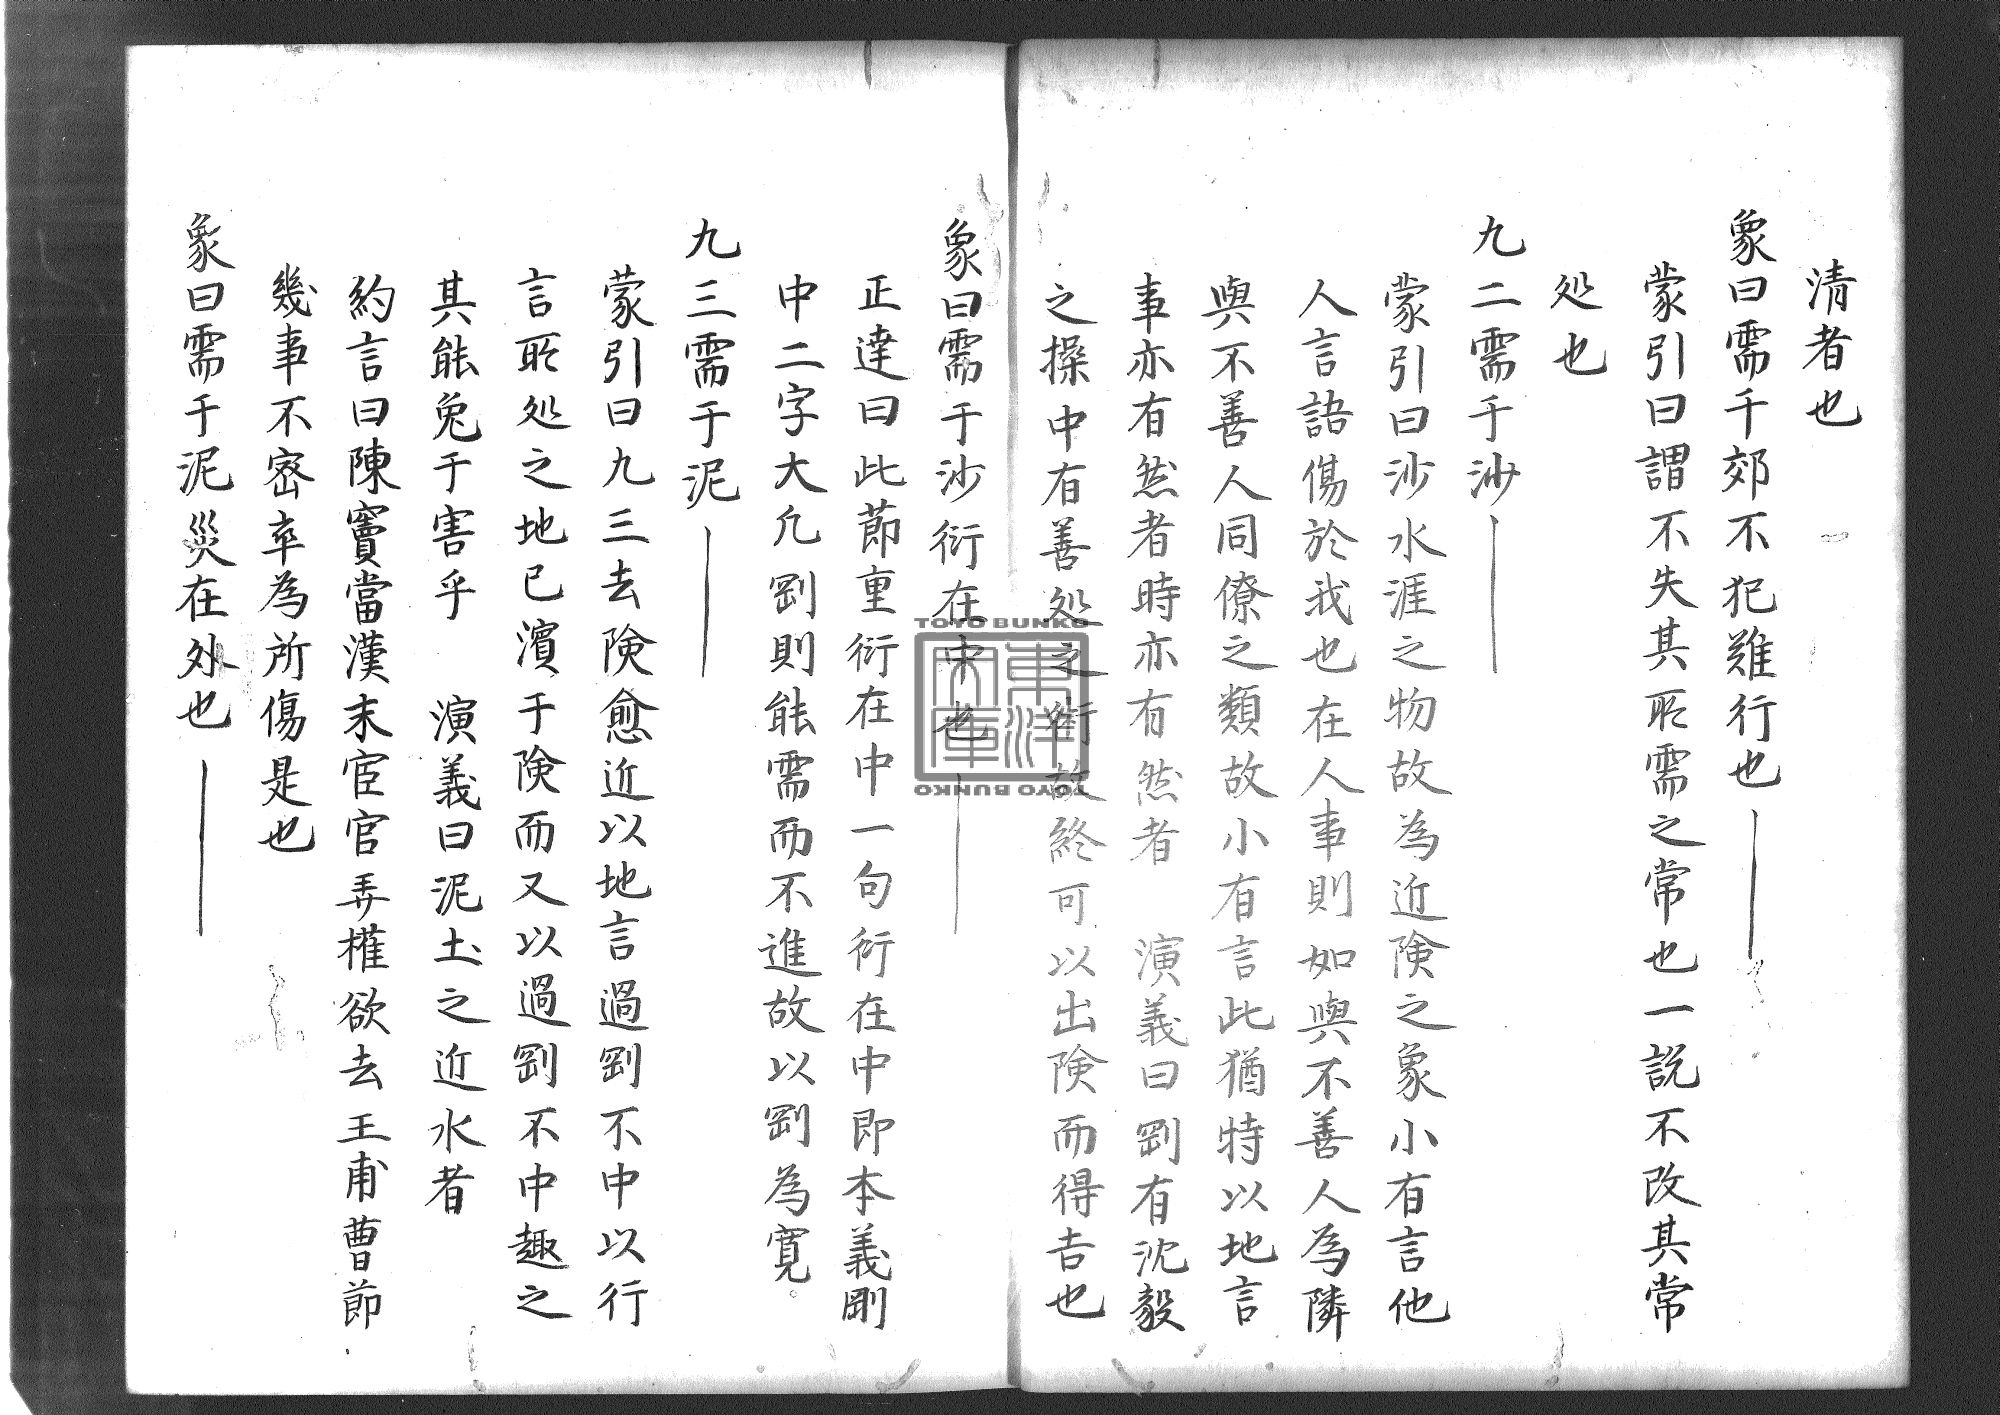 清者也
象曰需于郊不犯難行也
蒙引曰謂不失其所需之常也一説不改其常
処也
九二需于沙
蒙引曰沙水涯之物故為近険之象小有言他
人言語傷於我也在人事則如與不善人為隣
與不善人同僚之類故小有言此猶特以地言
事亦有然者時亦有然者 演義曰剛有沈毅
之操中有善処之術故終可以出険而得吉也
象曰需于沙衍在中也
正達曰此節重衍在中一句衍在中即本義剛
中二字大凢剛則能需而不進故以剛為寛
九三需于泥
蒙引曰九三去険愈近以地言過剛不中以行
言所処之地已濱于険而又以過剛不中趣之
其能免于害乎 演義曰泥土之近水者
約言曰陳竇當漢末宦官弄権欲去王甫曹節
幾事不密卒為所傷是也
象曰需于泥災在外也
TOYO BUNKO
東洋文庫
TOYO BUNKO